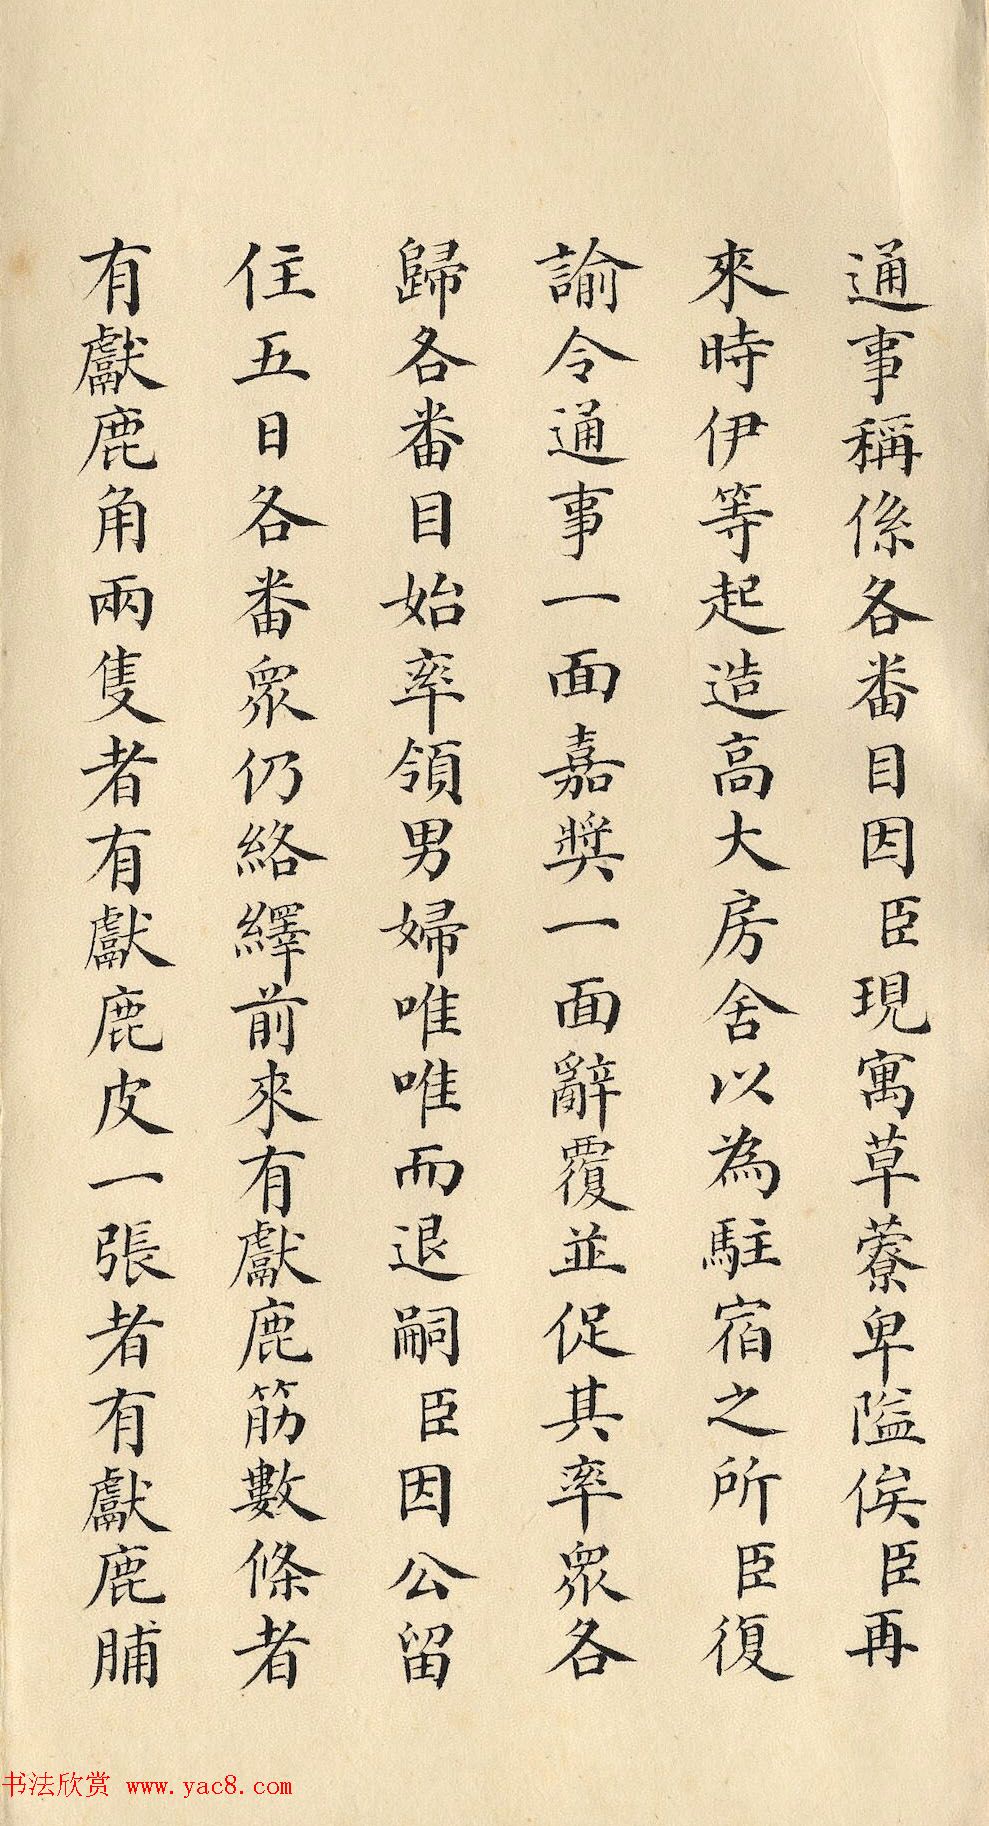 通事稱係各番目因臣現寓草藔卑隘俟臣再
來時伊等起造高大房舍以為駐宿之所臣復
諭令通事一面嘉獎一面辭覆並促其率眾各
歸各番目始率領男婦唯唯而退嗣臣因公留
住五日各番眾仍絡繹前來有獻鹿筋數條者
有獻鹿角兩隻者有獻鹿皮一張者有獻鹿脯
书法欣赏 www.yac8.com